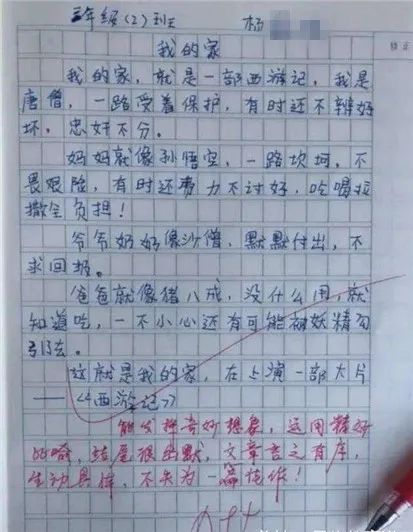 三年级(2)班 杨
我的家
我的家，就是一部西游记，我是
唐僧，一路受着保护，有时还不辨好
坏，忠奸不分。
妈妈就像孙悟空，一路坎坷，不
畏艰险，有时还费力不讨好，吃喝拉
撒全负担！
爷爷奶奶像沙僧，默默付出，不
求回报。
爸爸就像猪八戒，没什么用，就
知道吃，一不小心还有可能被妖精勾
引去。
这就是我的家，在上演一部大片
——《西游记》
能发挥奇妙想象，运用精妙
比喻，结尾很幽默，文章言之有序，
生动具体，不失为一篇佳作！